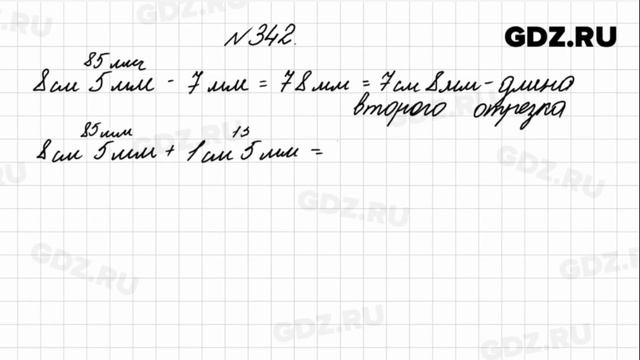 №342.
GDZ.RU
85мм
8см 5мм - 7мм = 78мм = 7см 8мм - длина
второго отрезка
85мм 15
8см 5мм + 1см 5мм =
GDZ.RU
GDZ.RU
GDZ.RU
GDZ.RU
GDZ.RU
GDZ.RU
GDZ.RU